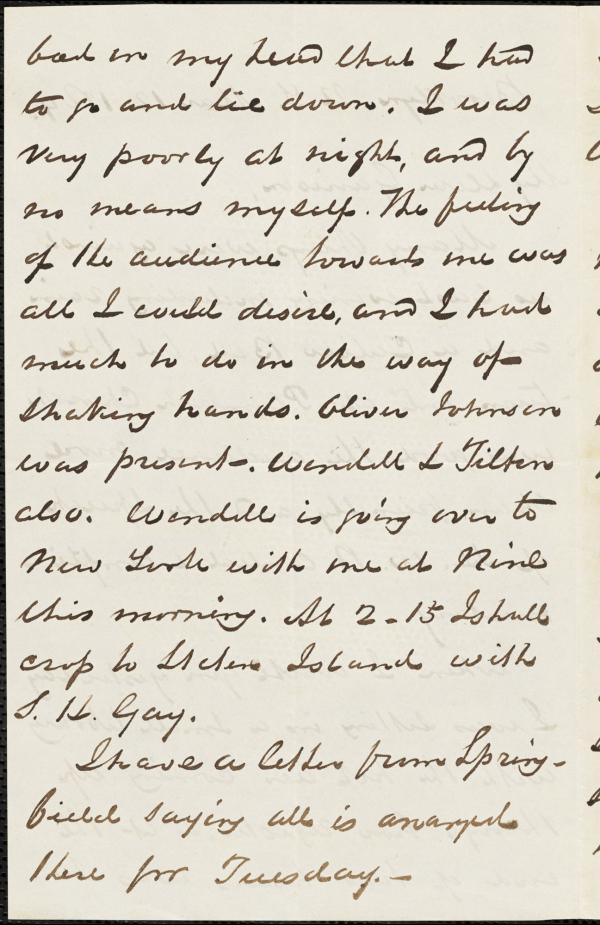 bad in my head that I had
to go and lie down. I was
very poorly at night, and by
no means myself. The feeling
of the audience towards me was
all I could desire, and I had
much to do in the way of
shaking hands. Oliver Johnson
was present. Wendell & Tilton
also. Wendell is going over to
New York with me at Nine
this morning. At 2-15 I shall
crop to Staten Island with
S. H. Gay.
I have a letter from Spring-
field saying all is arranged
there for Tuesday.—